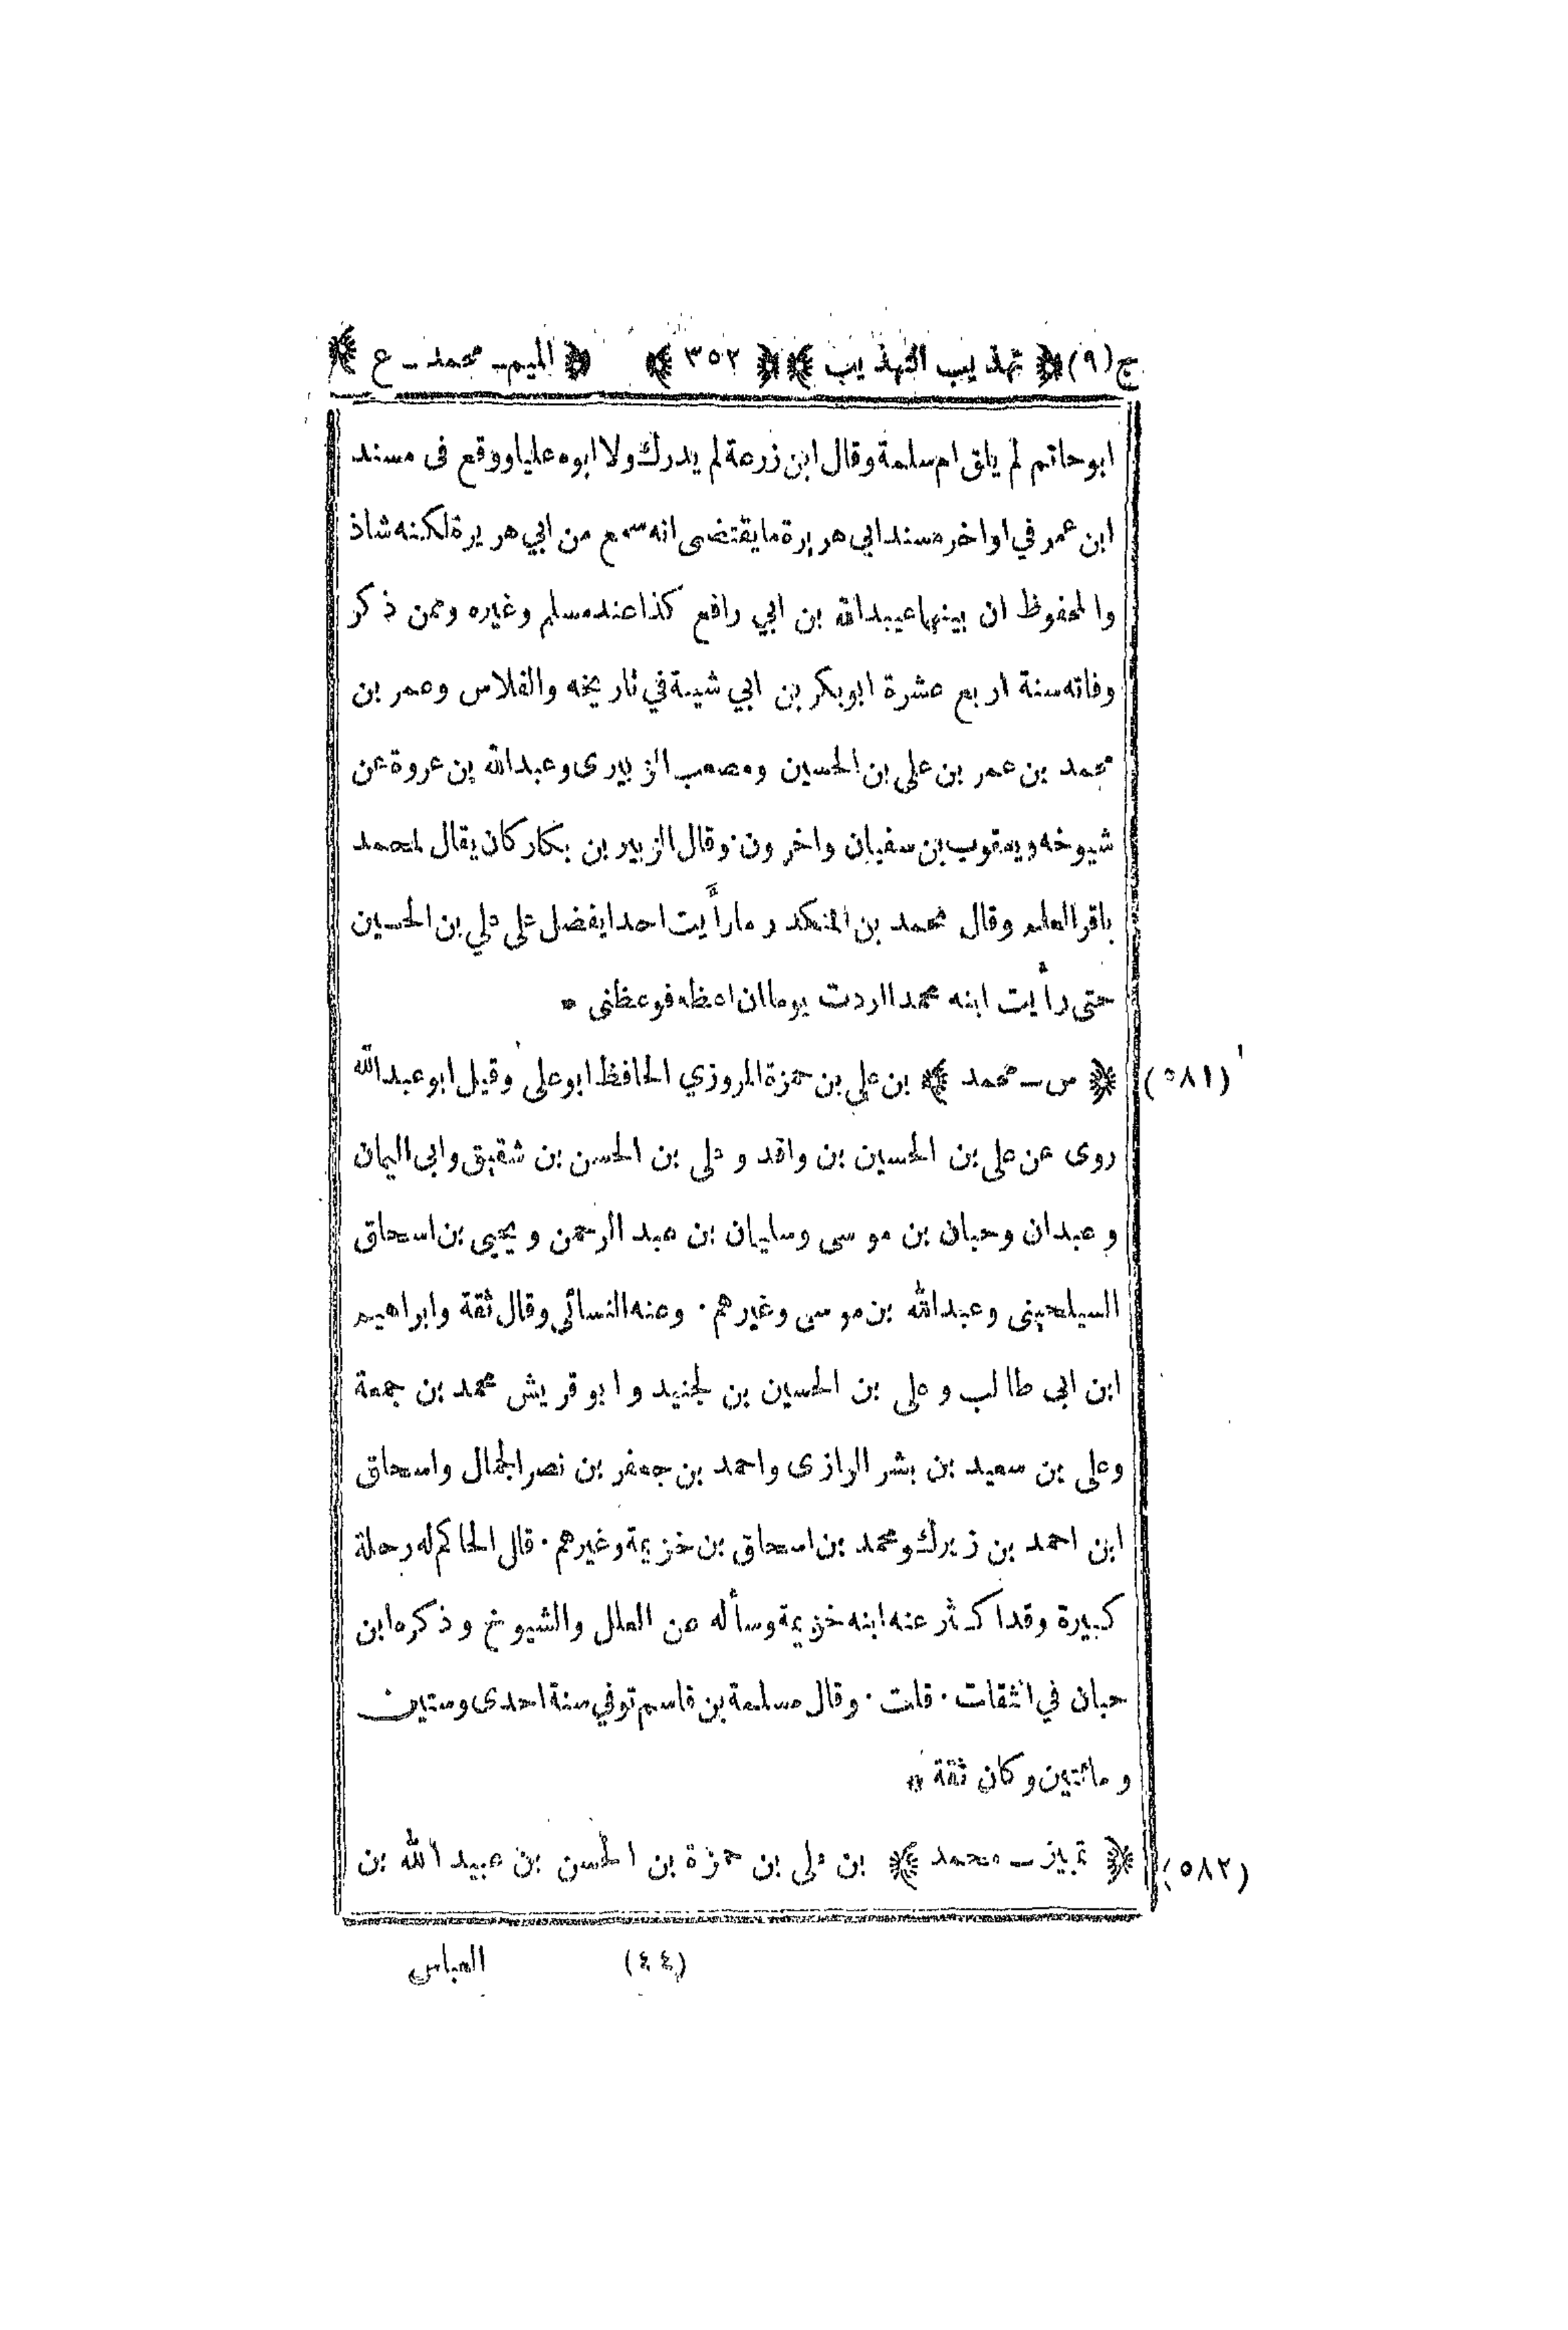 ج(٩) ﴿ تهذيب التهذيب ﴾ ﴿ ٣٥٢ ﴾ ﴿ الميم ـ محمد ـ ع ﴾
ابو حاتم لم يلق ام سلمة وقال ابن زرعة لم يدرك ولا ابوه عليا ووقع فى مسند
ابن عمر في اواخر مسند ابى هريرة ما يقتضى انه سمع من ابي هريرة لكنه شاذ
والمحفوظ ان بينهما عبيدالله بن ابي رافع كذا عند مسلم وغيره وممن ذكر
وفاته سنة اربع عشرة ابوبكر بن ابي شيبة في تاريخه والفلاس وعمر بن
محمد بن عمر بن على بن الحسين ومصعب الزبيرى وعبدالله بن عروة عن
شيوخه ويعقوب بن سفيان واخرون٠ وقال الزبير بن بكار كان يقال لمحمد
باقر العلم وقال محمد بن المنكدر ما رأيت احدا يفضل على على بن الحسين
حتى رأيت ابنه محمدا اردت يوما ان اعظه فوعظنى *
(٥٨١) ﴿ س ـ محمد ﴾ بن على بن حمزة المروزي الحافظ ابو على وقيل ابو عبدالله
روى عن على بن الحسين بن واقد و على بن الحسن بن شقيق وابى اليمان
و عبدان وحبان بن موسى وسليمان بن عبد الرحمن و يحيى بن اسحاق
السيلحينى وعبدالله بن موسى وغيرهم ٠ وعنه النسائى وقال ثقة وابراهيم
ابن ابى طالب و على بن الحسين بن لجنيد و ابو قريش محمد بن جمعة
وعلى بن سعيد بن بشر الرازى واحمد بن جعفر بن نصر الجمال واسحاق
ابن احمد بن زيرك ومحمد بن اسحاق بن خزيمة وغيرهم ٠ قال الحاكم له رحلة
كبيرة وقد اكثر عنه ابنه خزيمة وسأله عن العلل والشيوخ وذكره ابن
حبان في الثقات ٠ قلت ٠ وقال مسلمة بن قاسم توفي سنة احدى وستين
و مائتين وكان ثقة *
(٥٨٢) ﴿ تمييز ـ محمد ﴾ بن على بن حمزة بن الحسن بن عبيد الله بن
(٤٤) العباس